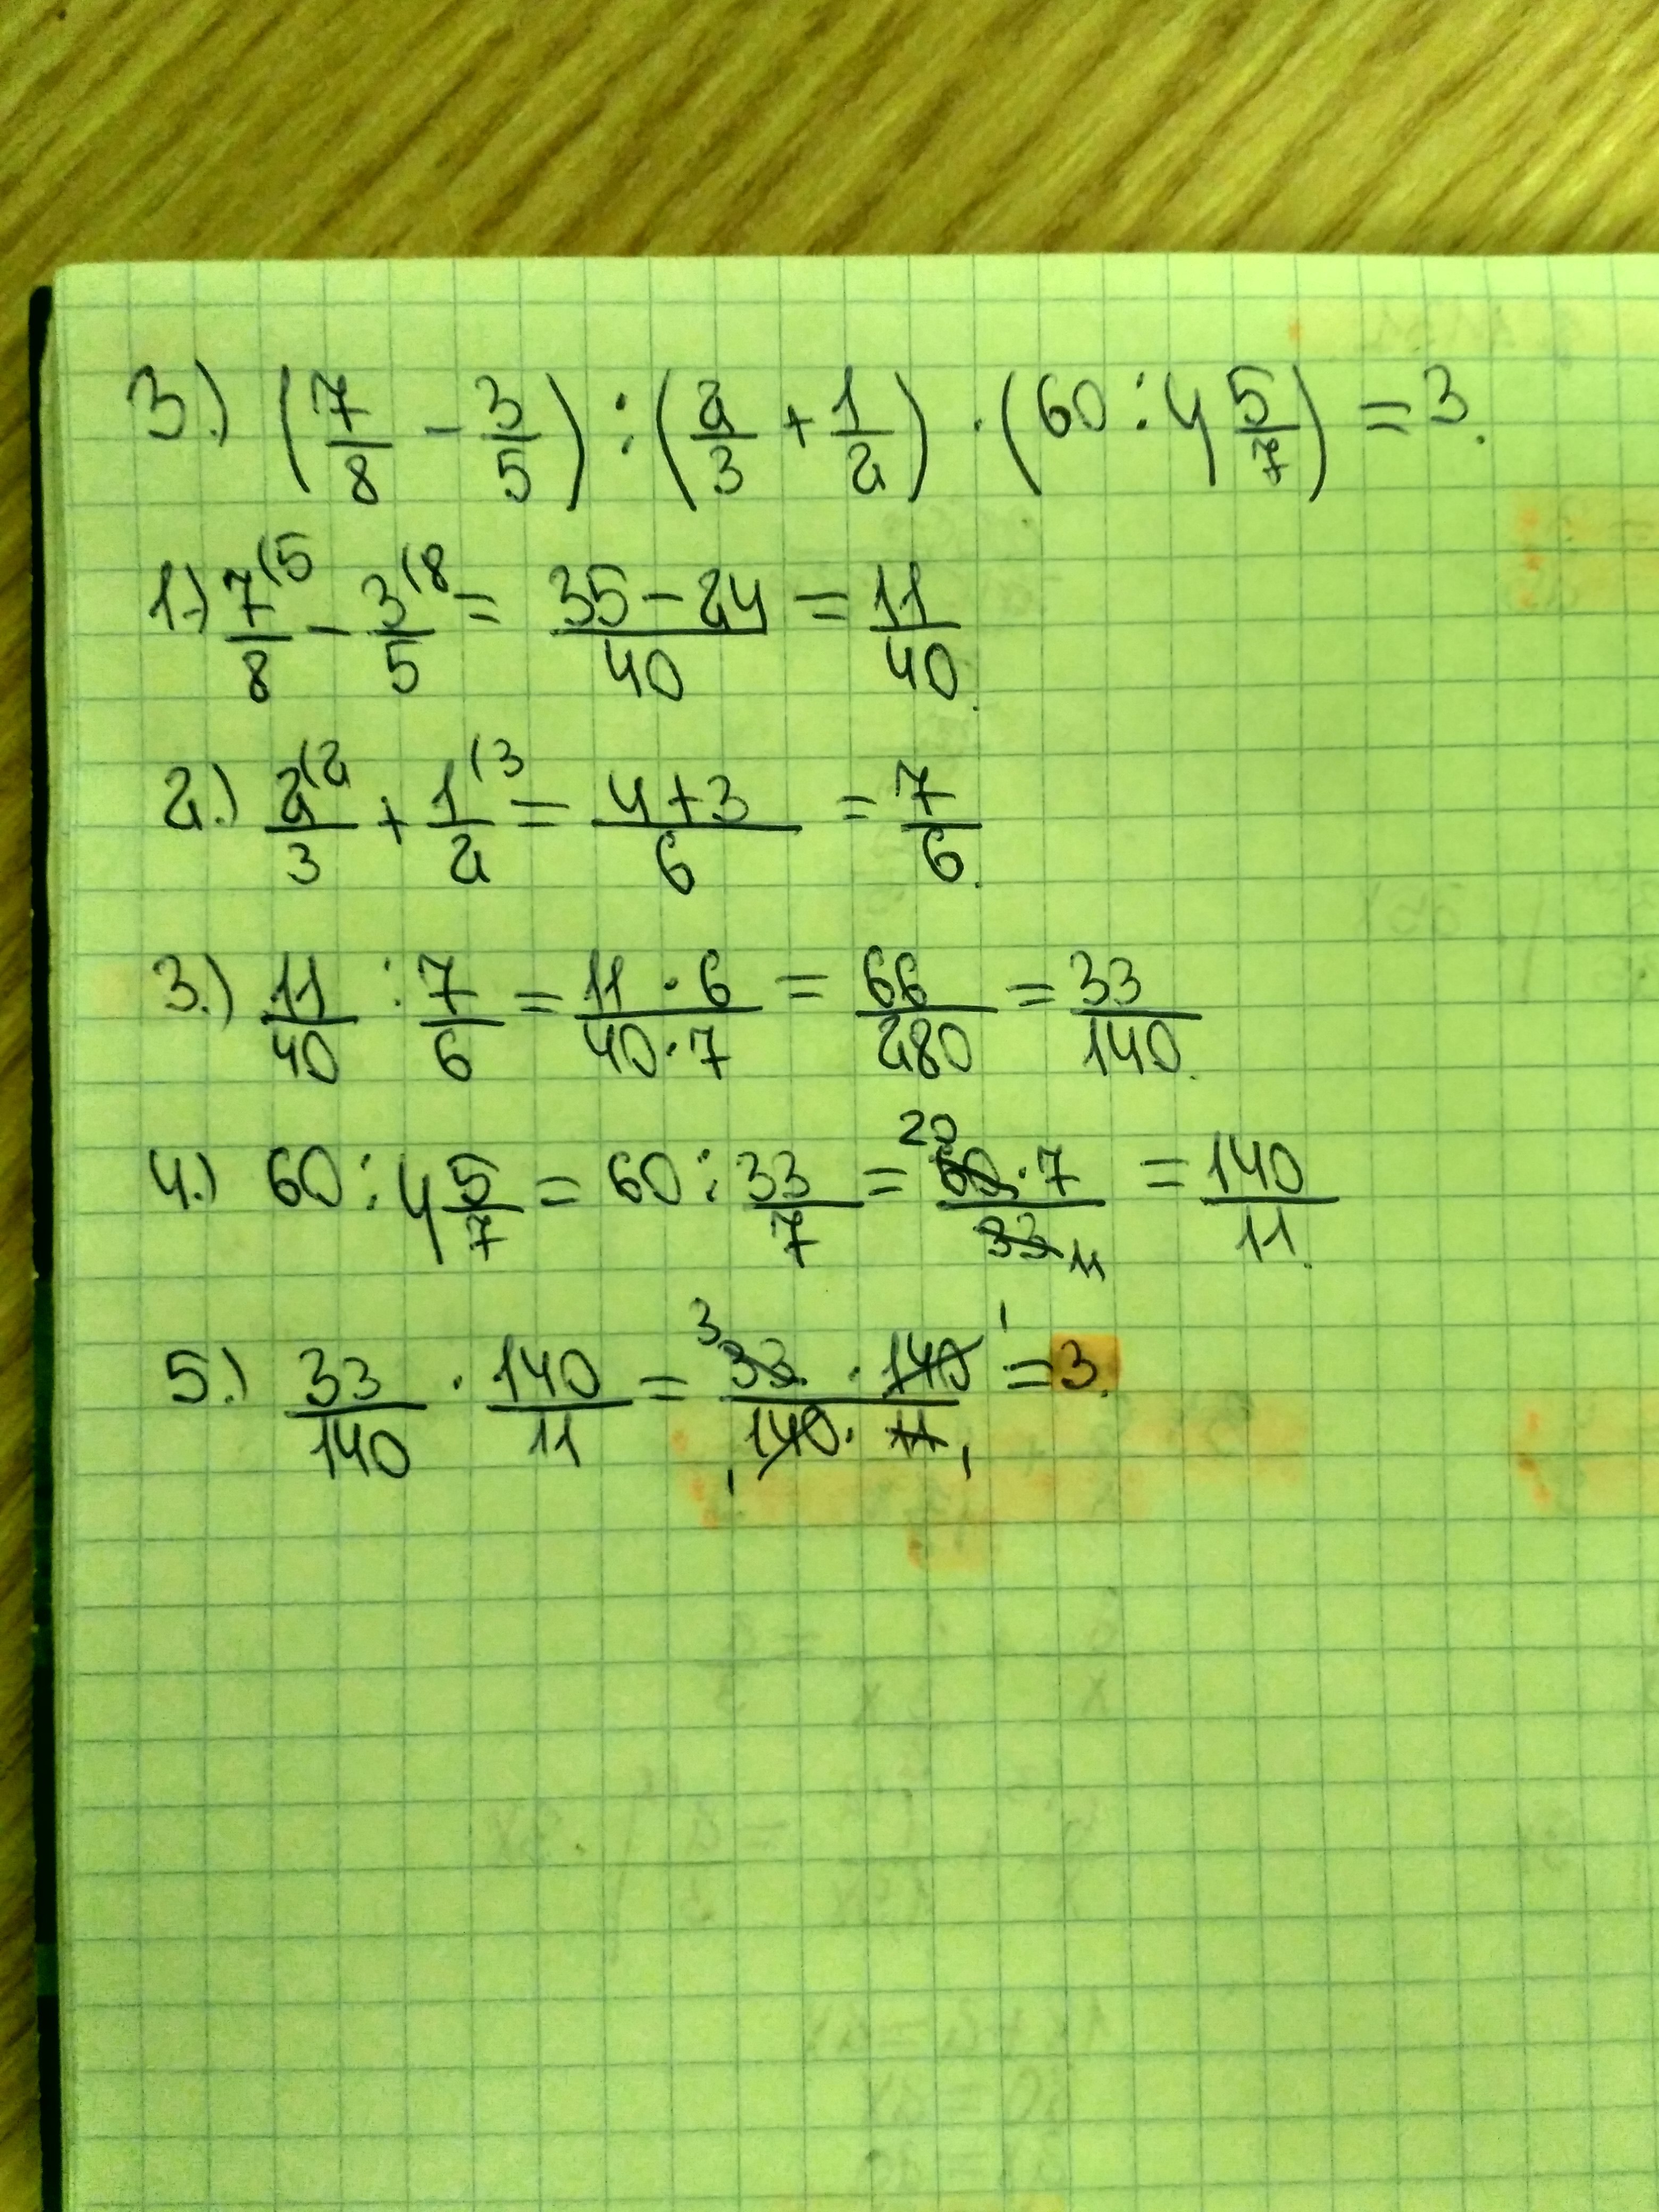 3.) (7/8 - 3/5) : (2/3 + 1/2) · (60 : 4 5/7) = 3.
1.) 7(5/8 - 3(8/5 = 35-24/40 = 11/40.
2.) 2(2/3 + 1(3/2 = 4+3/6 = 7/6.
3.) 11/40 : 7/6 = 11·6/40·7 = 66/280 = 33/140.
4.) 60 : 4 5/7 = 60 : 33/7 = 20 60·7/33 11 = 140/11.
5.) 33/140 · 140/11 = 3 33 · 140 1/1 140 · 11 1 = 3.